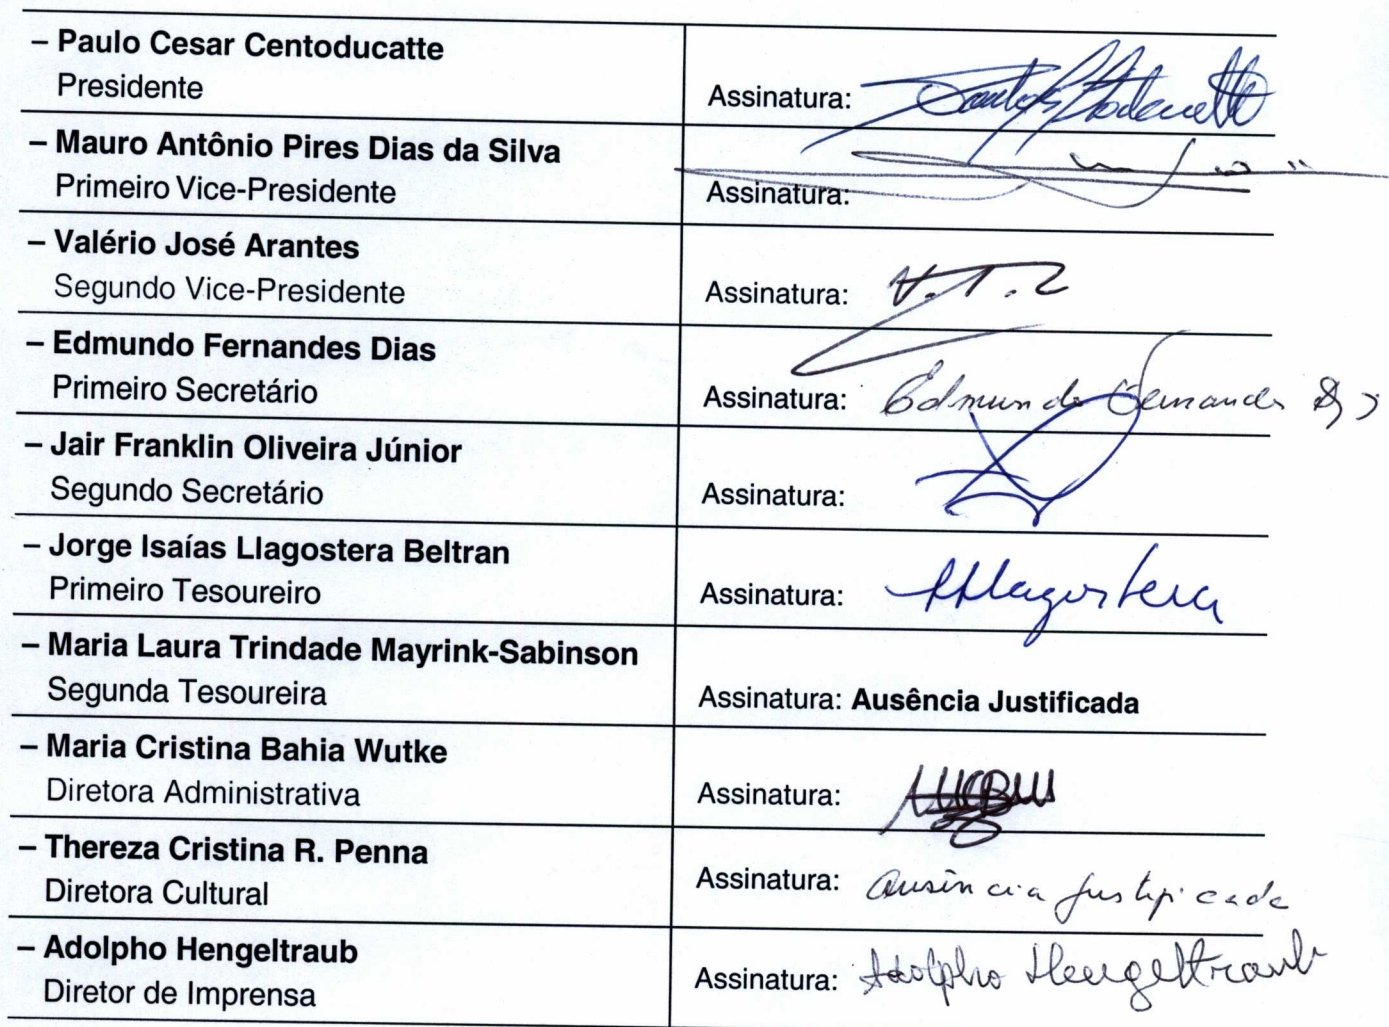 – Paulo Cesar Centoducatte
Presidente
Assinatura:
– Mauro Antônio Pires Dias da Silva
Primeiro Vice-Presidente
Assinatura:
– Valério José Arantes
Segundo Vice-Presidente
Assinatura:
– Edmundo Fernandes Dias
Primeiro Secretário
Assinatura: Edmundo Fernandes Dias
– Jair Franklin Oliveira Júnior
Segundo Secretário
Assinatura:
– Jorge Isaías Llagostera Beltran
Primeiro Tesoureiro
Assinatura: Llagostera
– Maria Laura Trindade Mayrink-Sabinson
Segunda Tesoureira
Assinatura: Ausência Justificada
– Maria Cristina Bahia Wutke
Diretora Administrativa
Assinatura:
– Thereza Cristina R. Penna
Diretora Cultural
Assinatura: Ausência Justificada
– Adolpho Hengeltraub
Diretor de Imprensa
Assinatura: Adolpho Hengeltraub